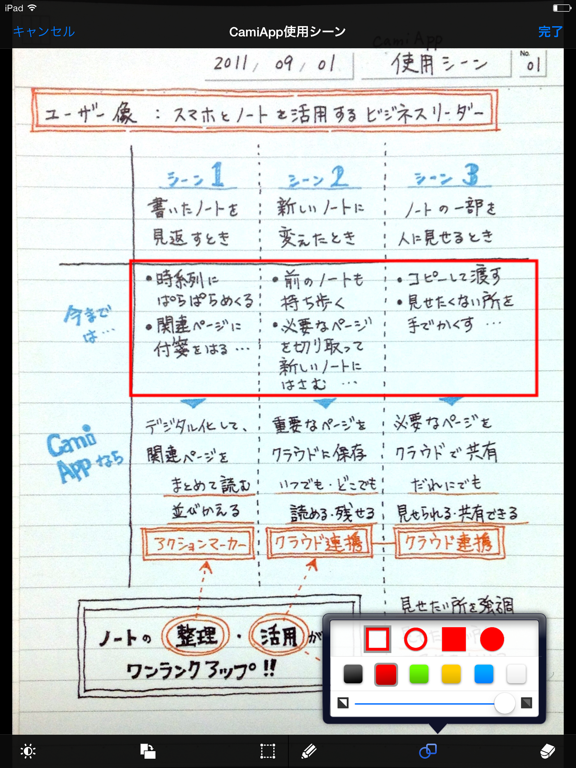 iPad
キャンセル
CamiApp使用シーン
完了
CamiApp
2011, 09, 01
使用シーン
No.
01
ユーザー像 : スマホとノートを活用するビジネスリーダー
シーン1
シーン2
シーン3
書いたノートを
見返すとき
新しいノートに
変えたとき
ノートの一部を
人に見せるとき
今まで
は…
•時系列に
ぱらぱらめくる
•関連ページに
付箋をはる…
•前のノートも
持ち歩く
•必要なページ
を切り取って
新しいノートに
はさむ…
•コピーして渡す
•見せたくない所を
手でかくす…
Cami
Appなら
デジタル化して、
関連ページを
まとめて読む
並びかえる
アクションマーカー
重要なページを
クラウドに保存
いつでも・どこでも
読める・残せる
クラウド連携
必要なページを
クラウドで共有
だれにでも
見せられる・共有できる
クラウド連携
ノートの整理・活用が
ワンランクアップ!!
見せたい所を強調